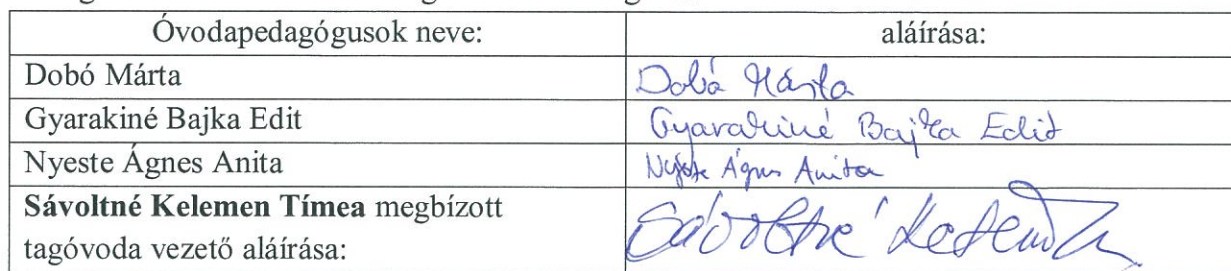 Óvodapedagógusok neve: aláírása:
Dobó Márta Dobó Márta
Gyarakiné Bajka Edit Gyarakiné Bajka Edit
Nyeste Ágnes Anita Nyeste Ágnes Anita
Sávoltné Kelemen Tímea megbízott
tagóvoda vezető aláírása: Sávoltné Kelemen